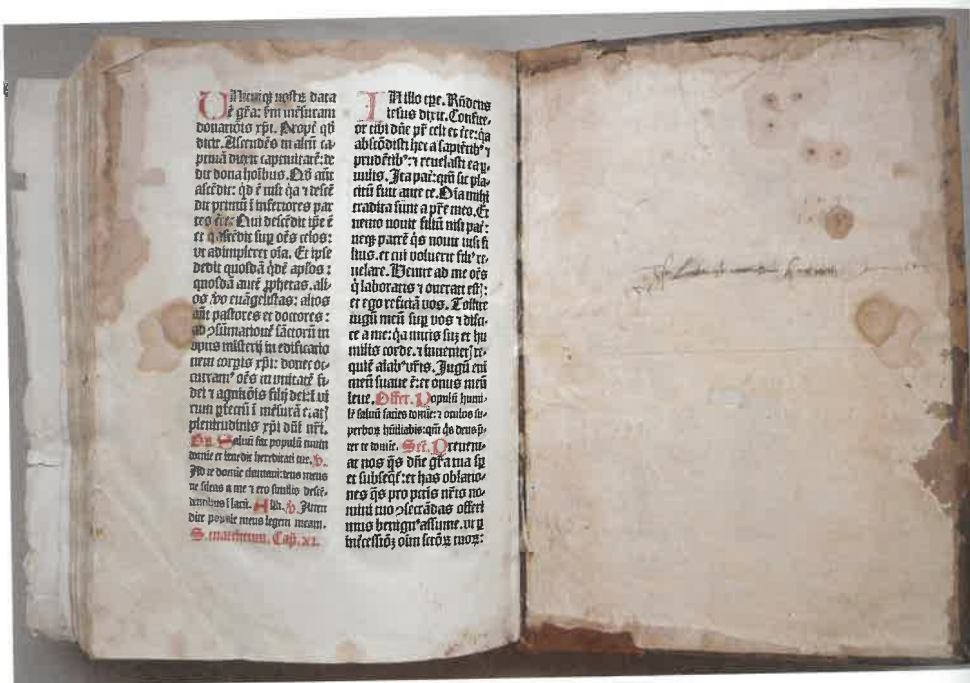 UNicuiqꝫ noſtrꝫ data
ē gr̄a: ẜm mēſuram
donatiōis xp̄i. Propt̄ qd̓
dicit. Aſcendēs in altū ca-
ptiuā duxit captiuitatē: de
dit dona hoībus. Qd̓ aūt
aſcēdit: qd̓ ē niſi q̄a ⁊ deſcē
dit primū ī inferiores par
tes t̄re: Qui deſcēdit ip̄e ē
et q̄ aſcēdit ſup oēs celos:
vt adimpleret oīa. Et ipſe
dedit quoſdā qd̓ē apl̓os:
quoſdā autē ꝓphetas. ali-
os v̓o euāgeliſtas: alios
aūt paſtores et doctores:
ad ꝯſumationē ſāctorū in
opus miſterij in edificatio
nem corp̄is xp̄i: donec oc-
curram᷒ oēs in vnitatē fi-
dei ⁊ agnitiōis filij dei: ī vi
rum ꝑfectū ī mēſurā etat̄ꝭ
plenitudinis xp̄i dn̄i nr̄i.
Saluū fac populū tuum
domie et benedic hereditati tue. V.
Ad te domie clamaui: deus meus
ne ſileas a me ⁊ ero ſimilis deſcē-
dentibus ī lacū. All̓a. V. Atten
dite popule meus legem meam.
S. mattheum. Cap̄. XI.
IN illo tp̄e. Rn̄dens
ieſus dixit. Confite-
or tibi dn̄e pr̄ celi et t̄re: q̄a
abſcōdiſti hec a ſapiētib᷒ ⁊
prudētib᷒: ⁊ reuelaſti ea ꝑ-
uulis. Ita pat̄: qm̄ ſic pla-
citū fuit ante te. Oīa mihi
tradita ſunt a pr̄e meo. Et
nemo nouit filiū niſi pat̄:
neqꝫ patrē q̄s nouit niſi fi
lius. et cui voluerit fili᷒ re-
uelare. Uenite ad me oēs
q̄ laboratis ⁊ onerati eſtꝭ:
et ego reficiā vos. Tollite
iugū meū ſup vos ⁊ diſci-
te a me: q̄a mitis ſuꝫ et hu
milis corde. ⁊ inuenietꝭ re-
quiē aīab᷒ vr̄is. Jugū eni
meū ſuaue ē: et onus meū
leue. Offer. Populū humi-
lē ſaluū facies domie: ⁊ oculos ſu-
perboꝝ hūiliabis: qm̄ q̄s deus p̄-
ter te domie. Sec̄. Preueni-
at nos q̄s dn̄e gr̄a tua ſp̄
et ſubſeq̄t̄: et has oblatio-
nes q̄s pro pctīs nr̄is no-
mini tuo ꝯſecrādas offeri
mus benign᷒ aſſume. vt ꝑ
int̄ceſſiōꝫ oīm ſctōꝝ tuoꝝ: